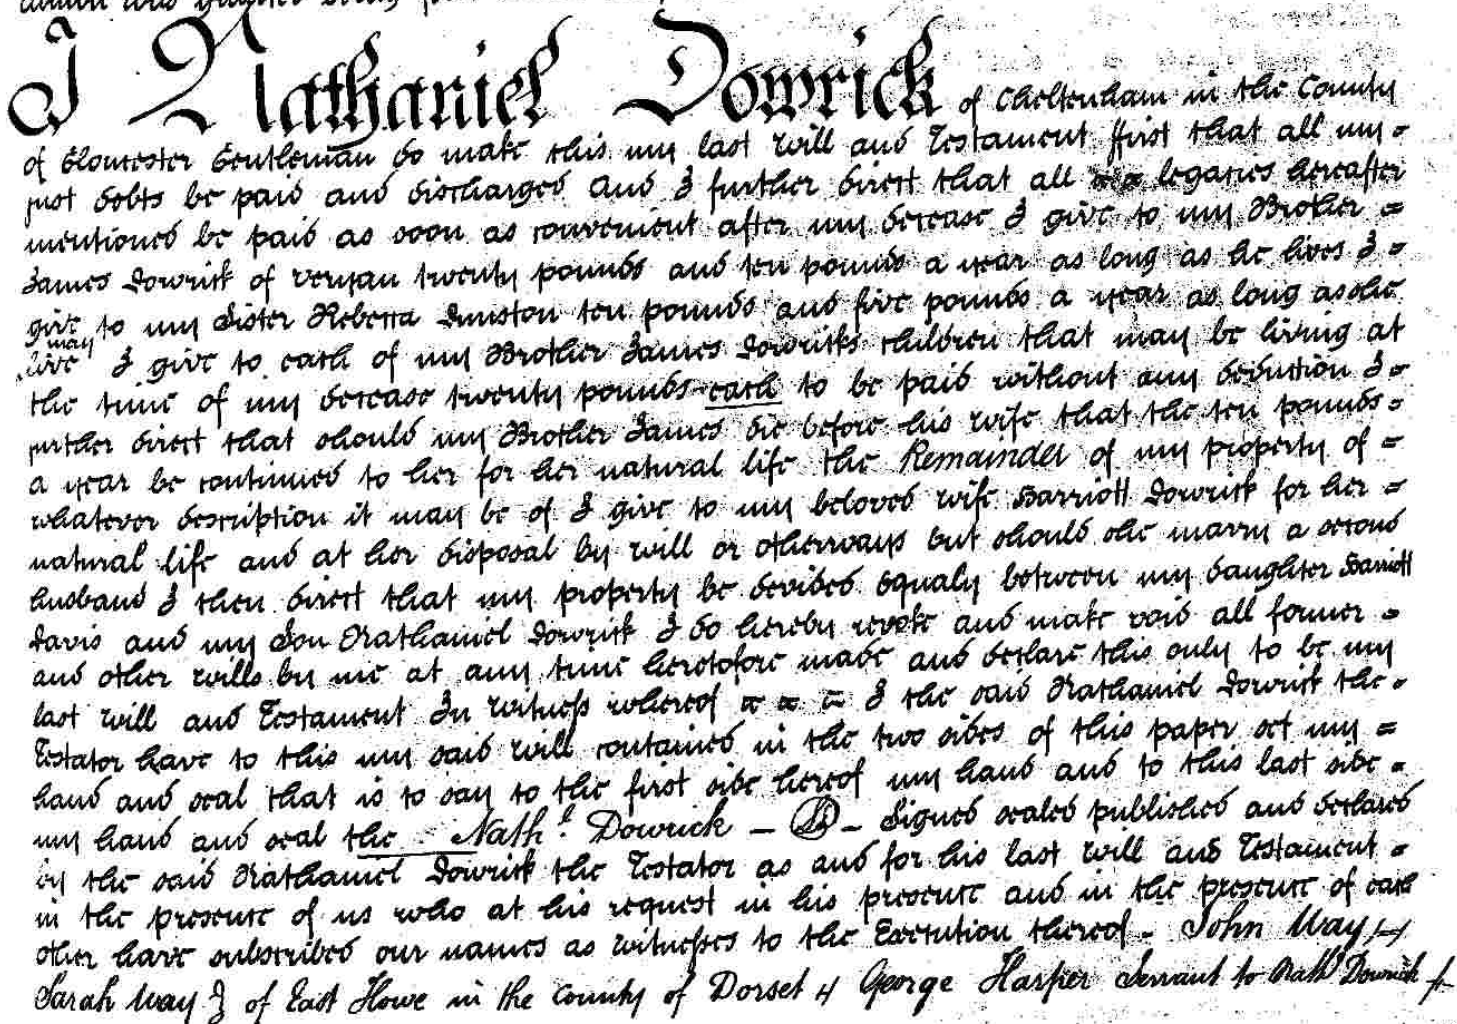 I Nathaniel Dowrick of Cheltenham in the County
of Gloucester Gentleman do make this my last Will and Testament ffirst that all my =
just debts be paid and discharged And I further direct that all legacies hereafter
mentioned be paid as soon as convenient after my decease I give to my Brother =
James Dowrick of Veryan twenty pounds and ten pounds a year as long as he lives I =
give to my Sister Rebecca Dunston ten pounds and five pounds a year as long as she
may
live I give to each of my Brother James Dowricks children that may be living at
the time of my decease twenty pounds each to be paid without any deduction I =
further direct that should my Brother James die before his wife that the ten pounds =
a year be continued to her for her natural life the Remainder of my property of =
whatever description it may be of I give to my beloved wife Harriott Dowrick for her =
natural life and at her disposal by will or otherways but should she marry a second
husband I then direct that my property be devided equaly between my daughter Harriott
Davis and my Son Nathaniel Dowrick I do hereby revoke and make void all former =
and other wills by me at any time heretofore made and declare this only to be my
last will and Testament In Witness whereof I the said Nathaniel Dowrick the =
Testator have to this my said will contained in the two sides of this paper set my =
hand and seal that is to say to the first side hereof my hand and to this last side =
my hand and seal the Nathl. Dowrick – LS – Signed sealed published and declared
by the said Nathaniel Dowrick the Testator as and for his last Will and Testament =
in the presence of us who at his request in his presence and in the presence of each
other have subscribed our names as witnesses to the Execution thereof – John Way,
Sarah Way } of East Howe in the County of Dorset George Harper Servant to Nathl Dowrick